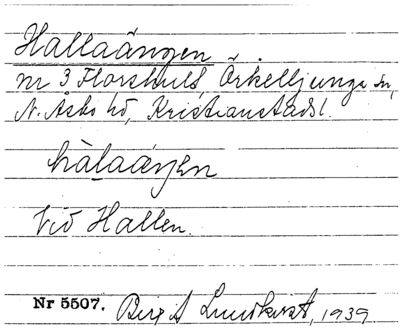 Hallaängen
nr 3 Florshult, Örkelljunga sn,
N. Åsbo hd, Kristianstads l.
hàlaäŋen
Vid Hallen.
Nr 5507. Birgit Lundkvist, 1939